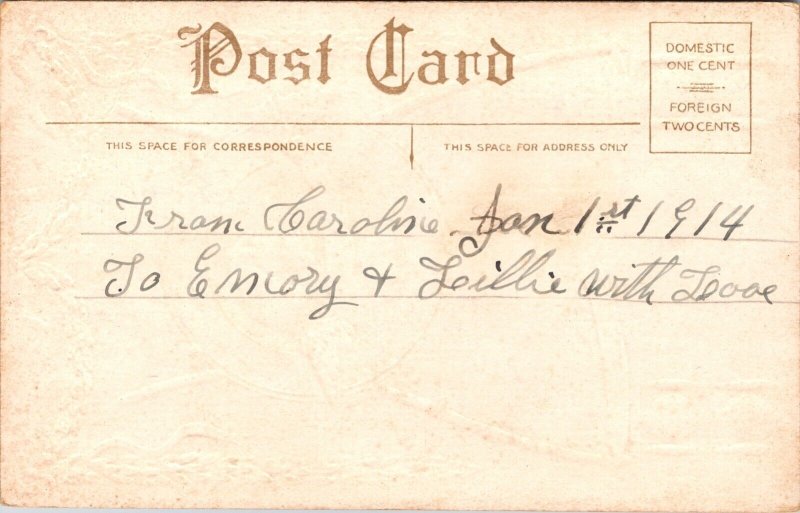 Post Card
DOMESTIC
ONE CENT
FOREIGN
TWO CENTS
THIS SPACE FOR CORRESPONDENCE
THIS SPACE FOR ADDRESS ONLY
From Caroline Jan 1st 1914
To Emory + Lillie with Love